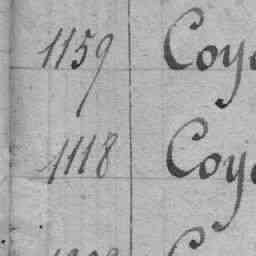 1159 Coy
1118 Coy